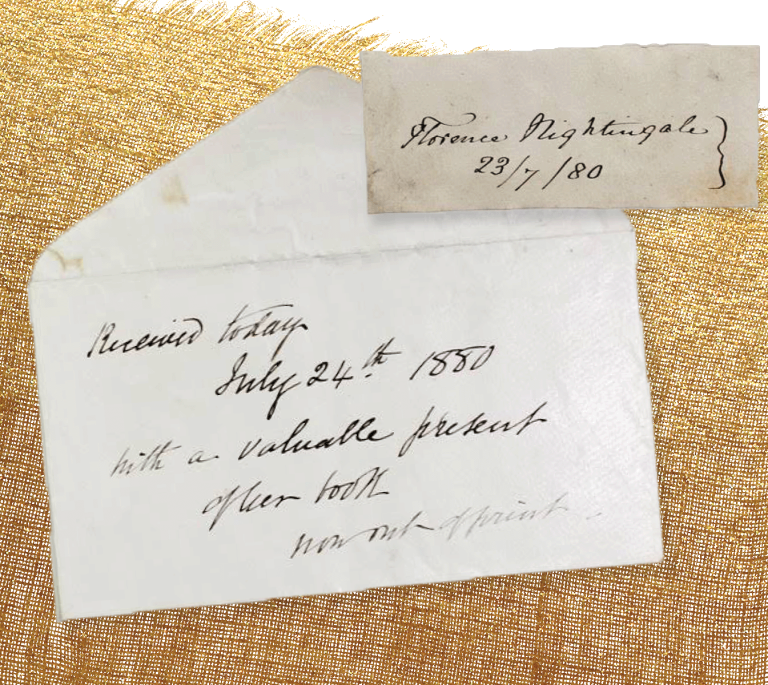 Florence Nightingale }
23/7/80
Received today
July 24th 1880
with a valuable present
of her book
now out of print